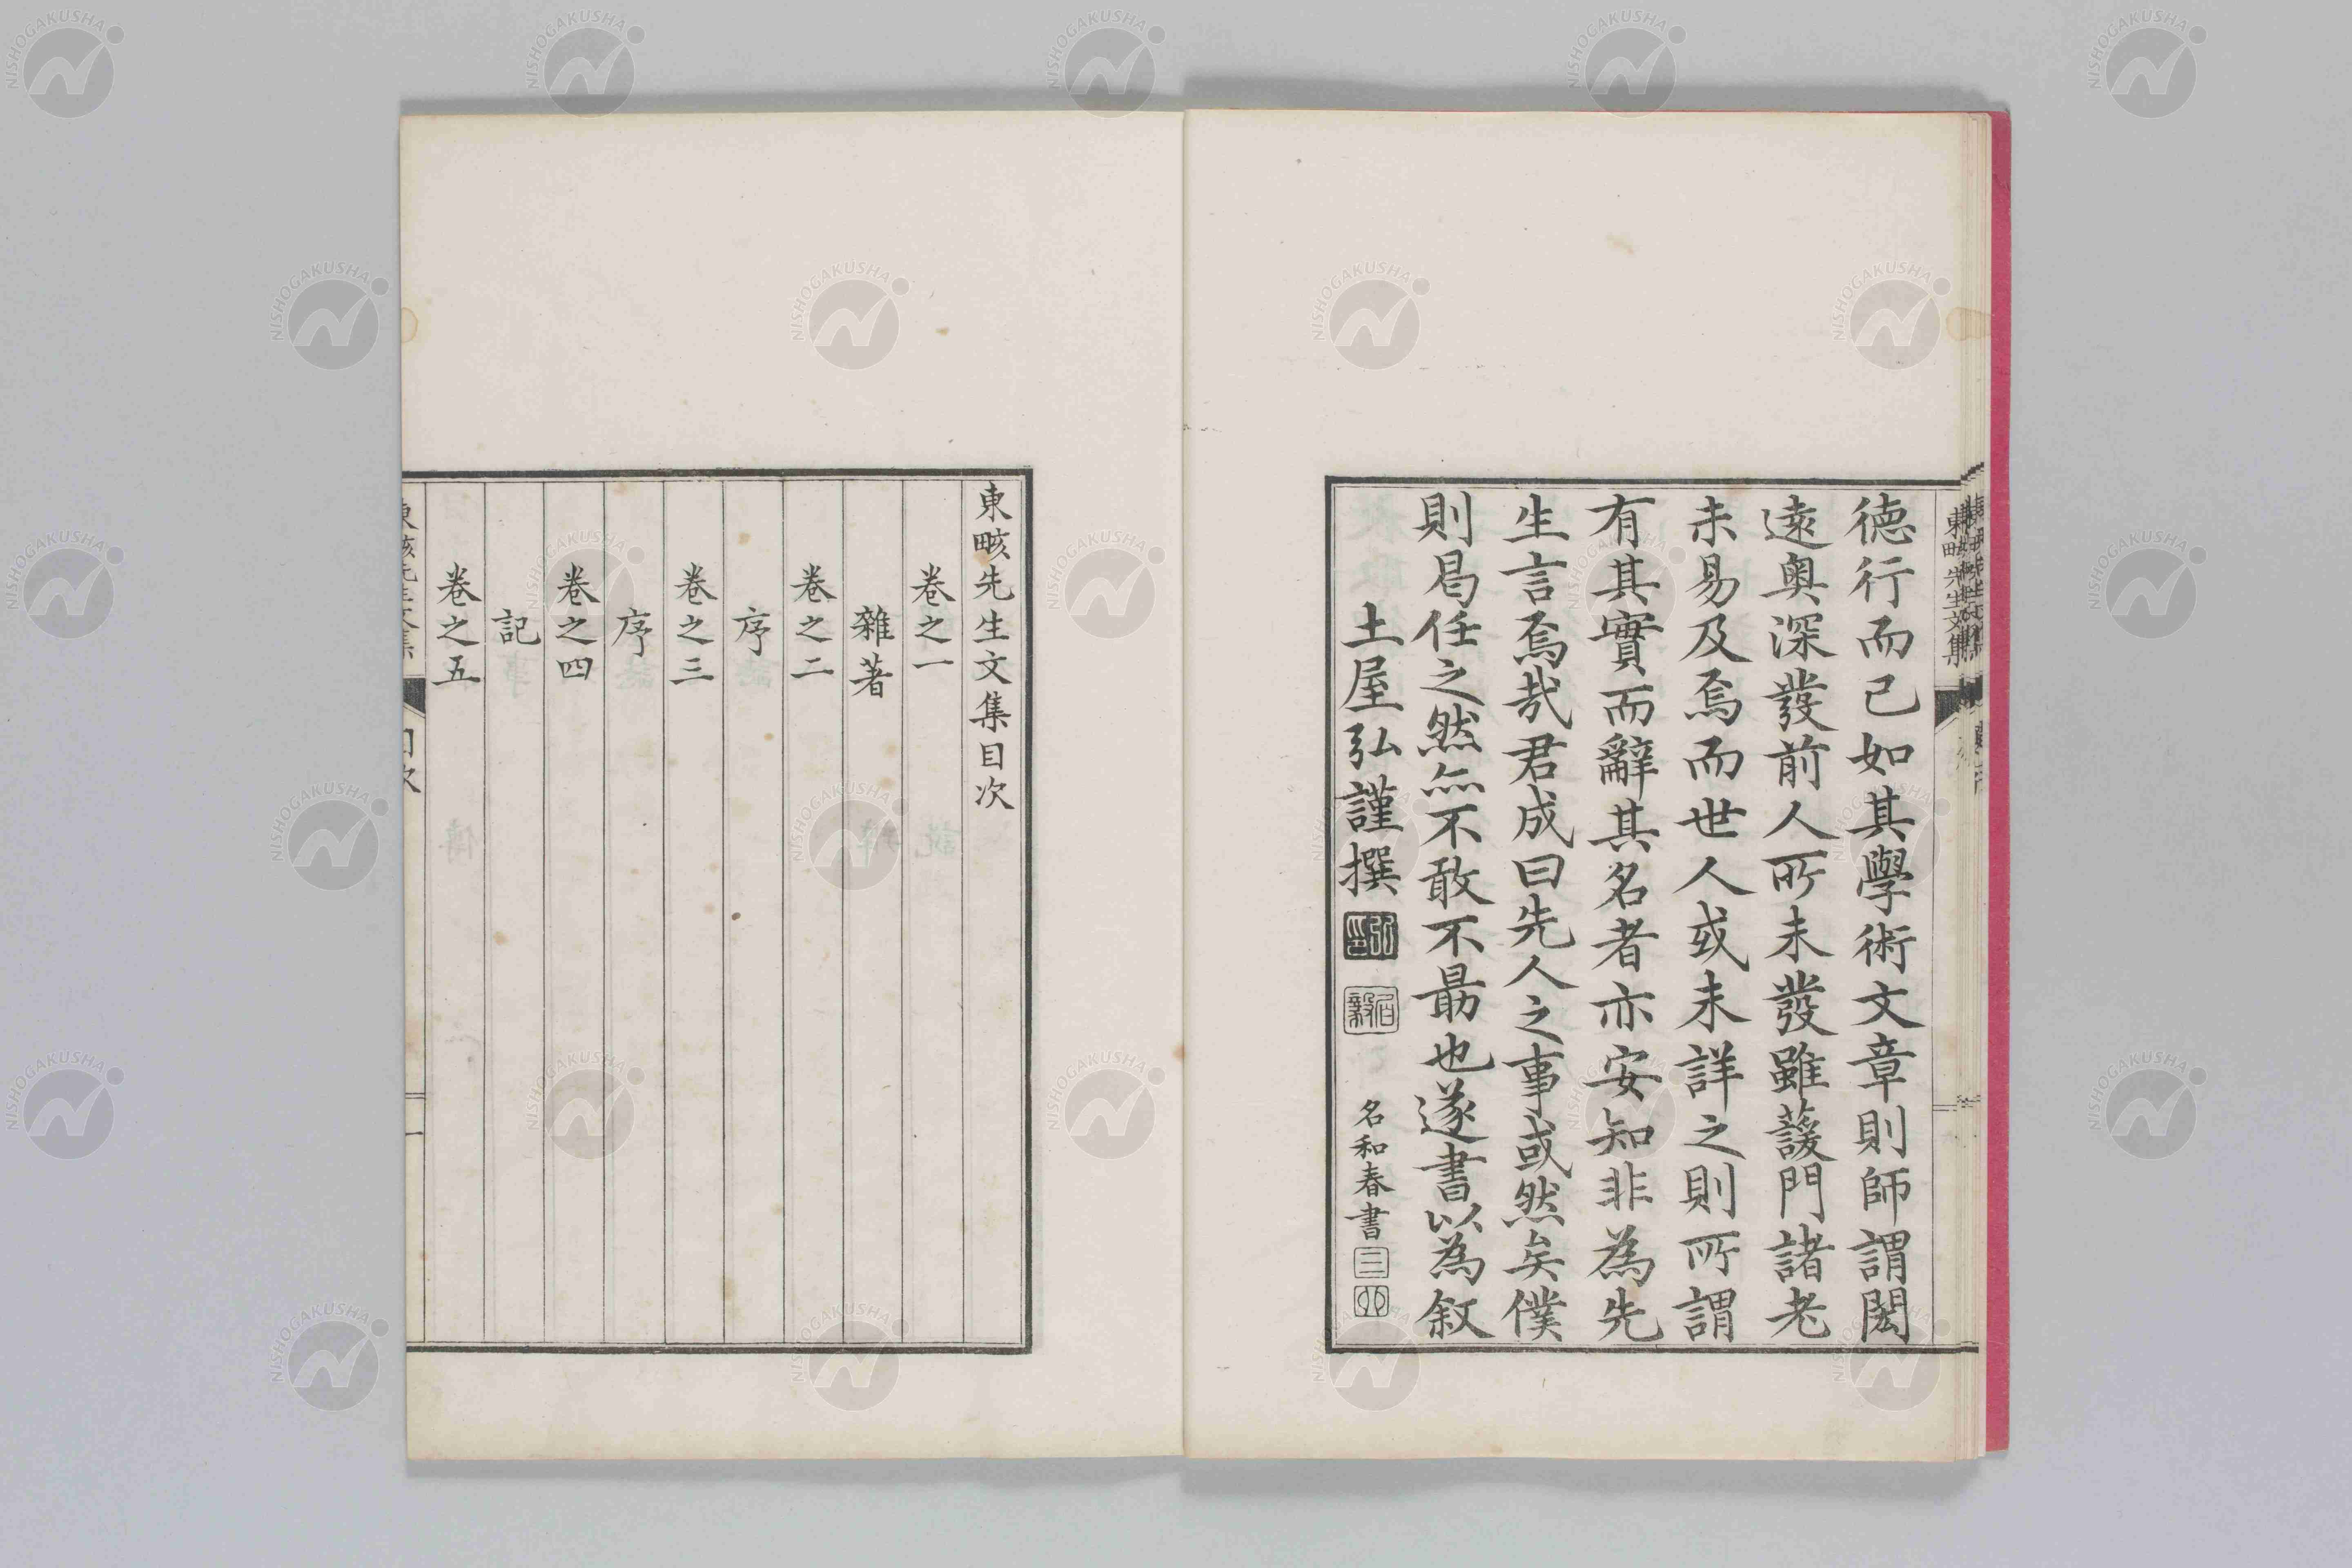 德行而已如其學術文章則師謂閎
遠奧深發前人所未發雖蘐門諸老
未易及焉而世人或未詳之則所謂
有其實而辭其名者亦安知非為先
生言焉哉君成曰先人之事或然矣僕
則曷任之然無不敢不勗也遂書以為叙
土屋弘謹撰
名和春書
東畡先生文集目次
卷之一
雜著
卷之二
序
卷之三
序
卷之四
記
卷之五
NISHOGAKUSHA